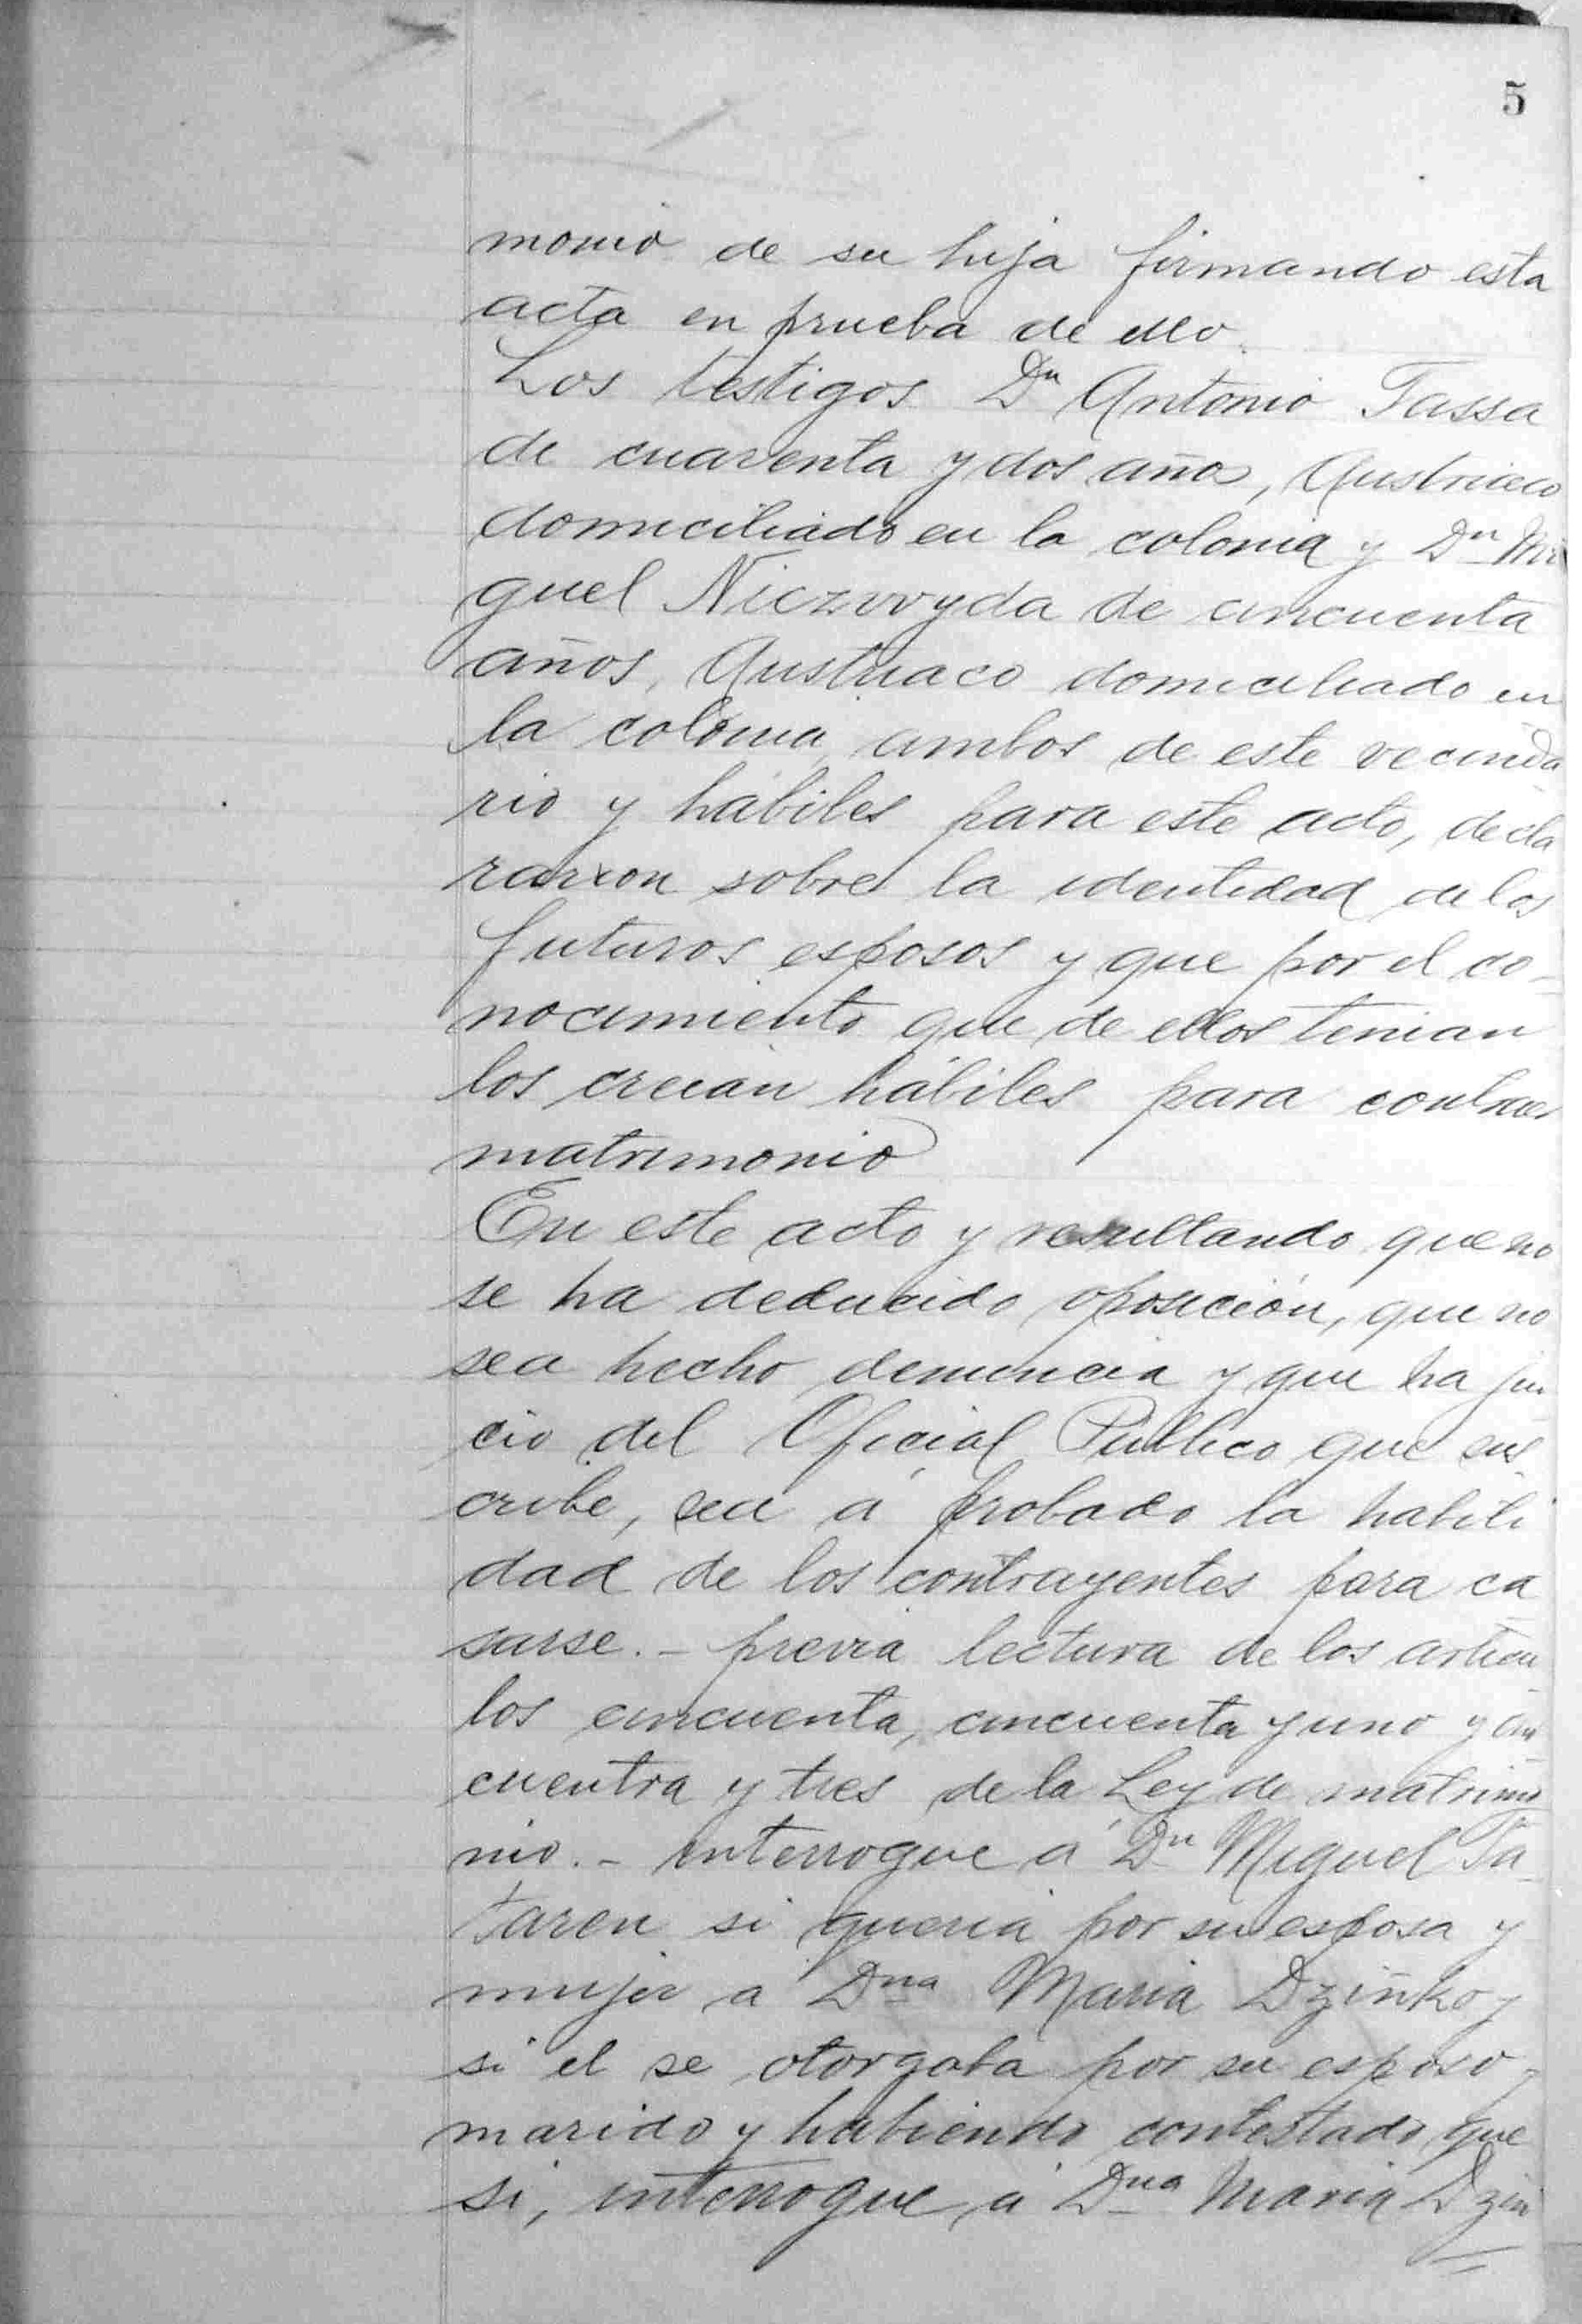 5
monio de su hija firmando esta
acta en prueba de ello.
Los testigos Dn Antonio Tassa
de cuarenta y dos años, Austriaco
domiciliado en la colonia y Dn Mi
guel Niczwyda de cincuenta
años, Austriaco domiciliado en
la colonia, ambos de este vecinda
rio y hábiles para este acto, decla
raron sobre la identidad de los
futuros esposos y que por el co-
nocimiento que de ellos tenian
los creian hábiles para contraer
matrimonio
En este acto y resultando que no
se ha deducido oposición, que no
sea hecho denuncia y que ha jui
cio del Oficial Público que sus
cribe, sea á probado la habili
dad de los contrayentes para ca
sarse. - previa lectura de los articu
los cincuenta, cincuenta y uno y cin
cuentra y tres de la Ley de matrimo
nio. - interrogue á Dn Miguel Ta-
taren si queria por su esposa y
mujer a Dna Maria Dziñko y
si el se otorgaba por su esposo y
marido y habiendo contestado que
si, interrogue á Dna Maria Dziñ